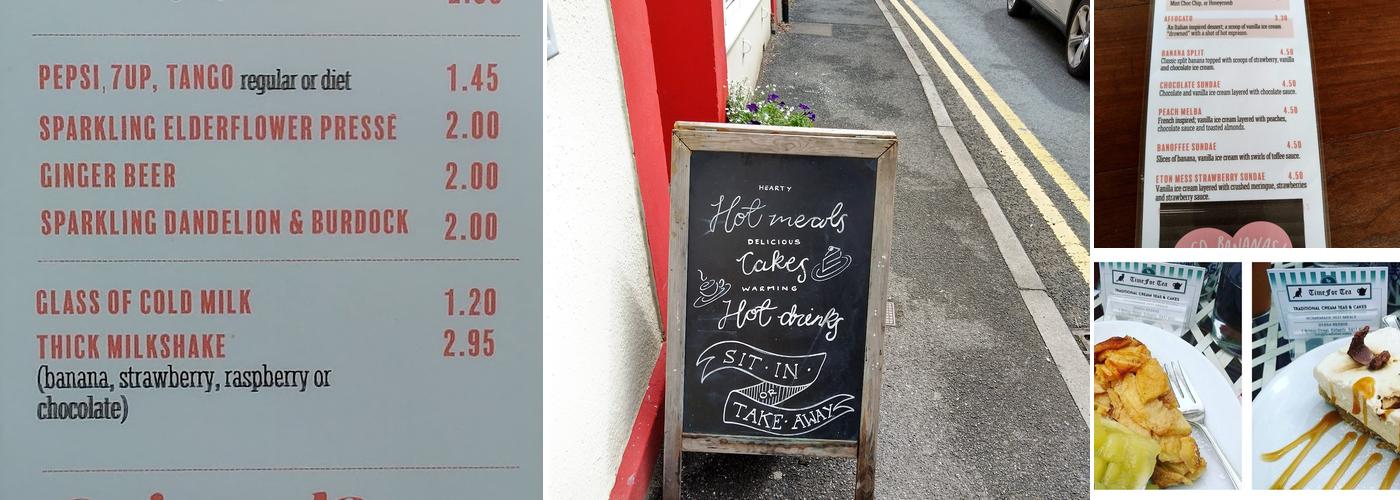 PEPSI, 7UP, TANGO regular or diet 1.45
SPARKLING ELDERFLOWER PRESSÉ 2.00
GINGER BEER 2.00
SPARKLING DANDELION & BURDOCK 2.00
GLASS OF COLD MILK 1.20
THICK MILKSHAKE 2.95
(banana, strawberry, raspberry or
chocolate)
HEARTY
Hot meals
DELICIOUS
Cakes
WARMING
Hot drinks
SIT · IN ·
or
TAKE · AWAY
Mint Choc Chip, or Honeycomb
AFFOGATO 3.30
An Italian inspired dessert; a scoop of vanilla ice cream
"drowned" with a shot of hot espresso.
BANANA SPLIT 4.50
Classic split banana topped with scoops of strawberry, vanilla
and chocolate ice cream.
CHOCOLATE SUNDAE 4.50
Chocolate and vanilla ice cream layered with chocolate sauce.
PEACH MELBA 4.50
French inspired; vanilla ice cream layered with peaches,
chocolate sauce and toasted almonds.
BANOFFEE SUNDAE 4.50
Slices of banana, vanilla ice cream with swirls of toffee sauce.
ETON MESS STRAWBERRY SUNDAE 4.50
Vanilla ice cream layered with crushed meringue, strawberries
and strawberry sauce.
BANANAS
Time For Tea
TRADITIONAL CREAM TEAS & CAKES
Time For Tea
TRADITIONAL CREAM TEAS & CAKES
HOMEMADE HOT MEALS